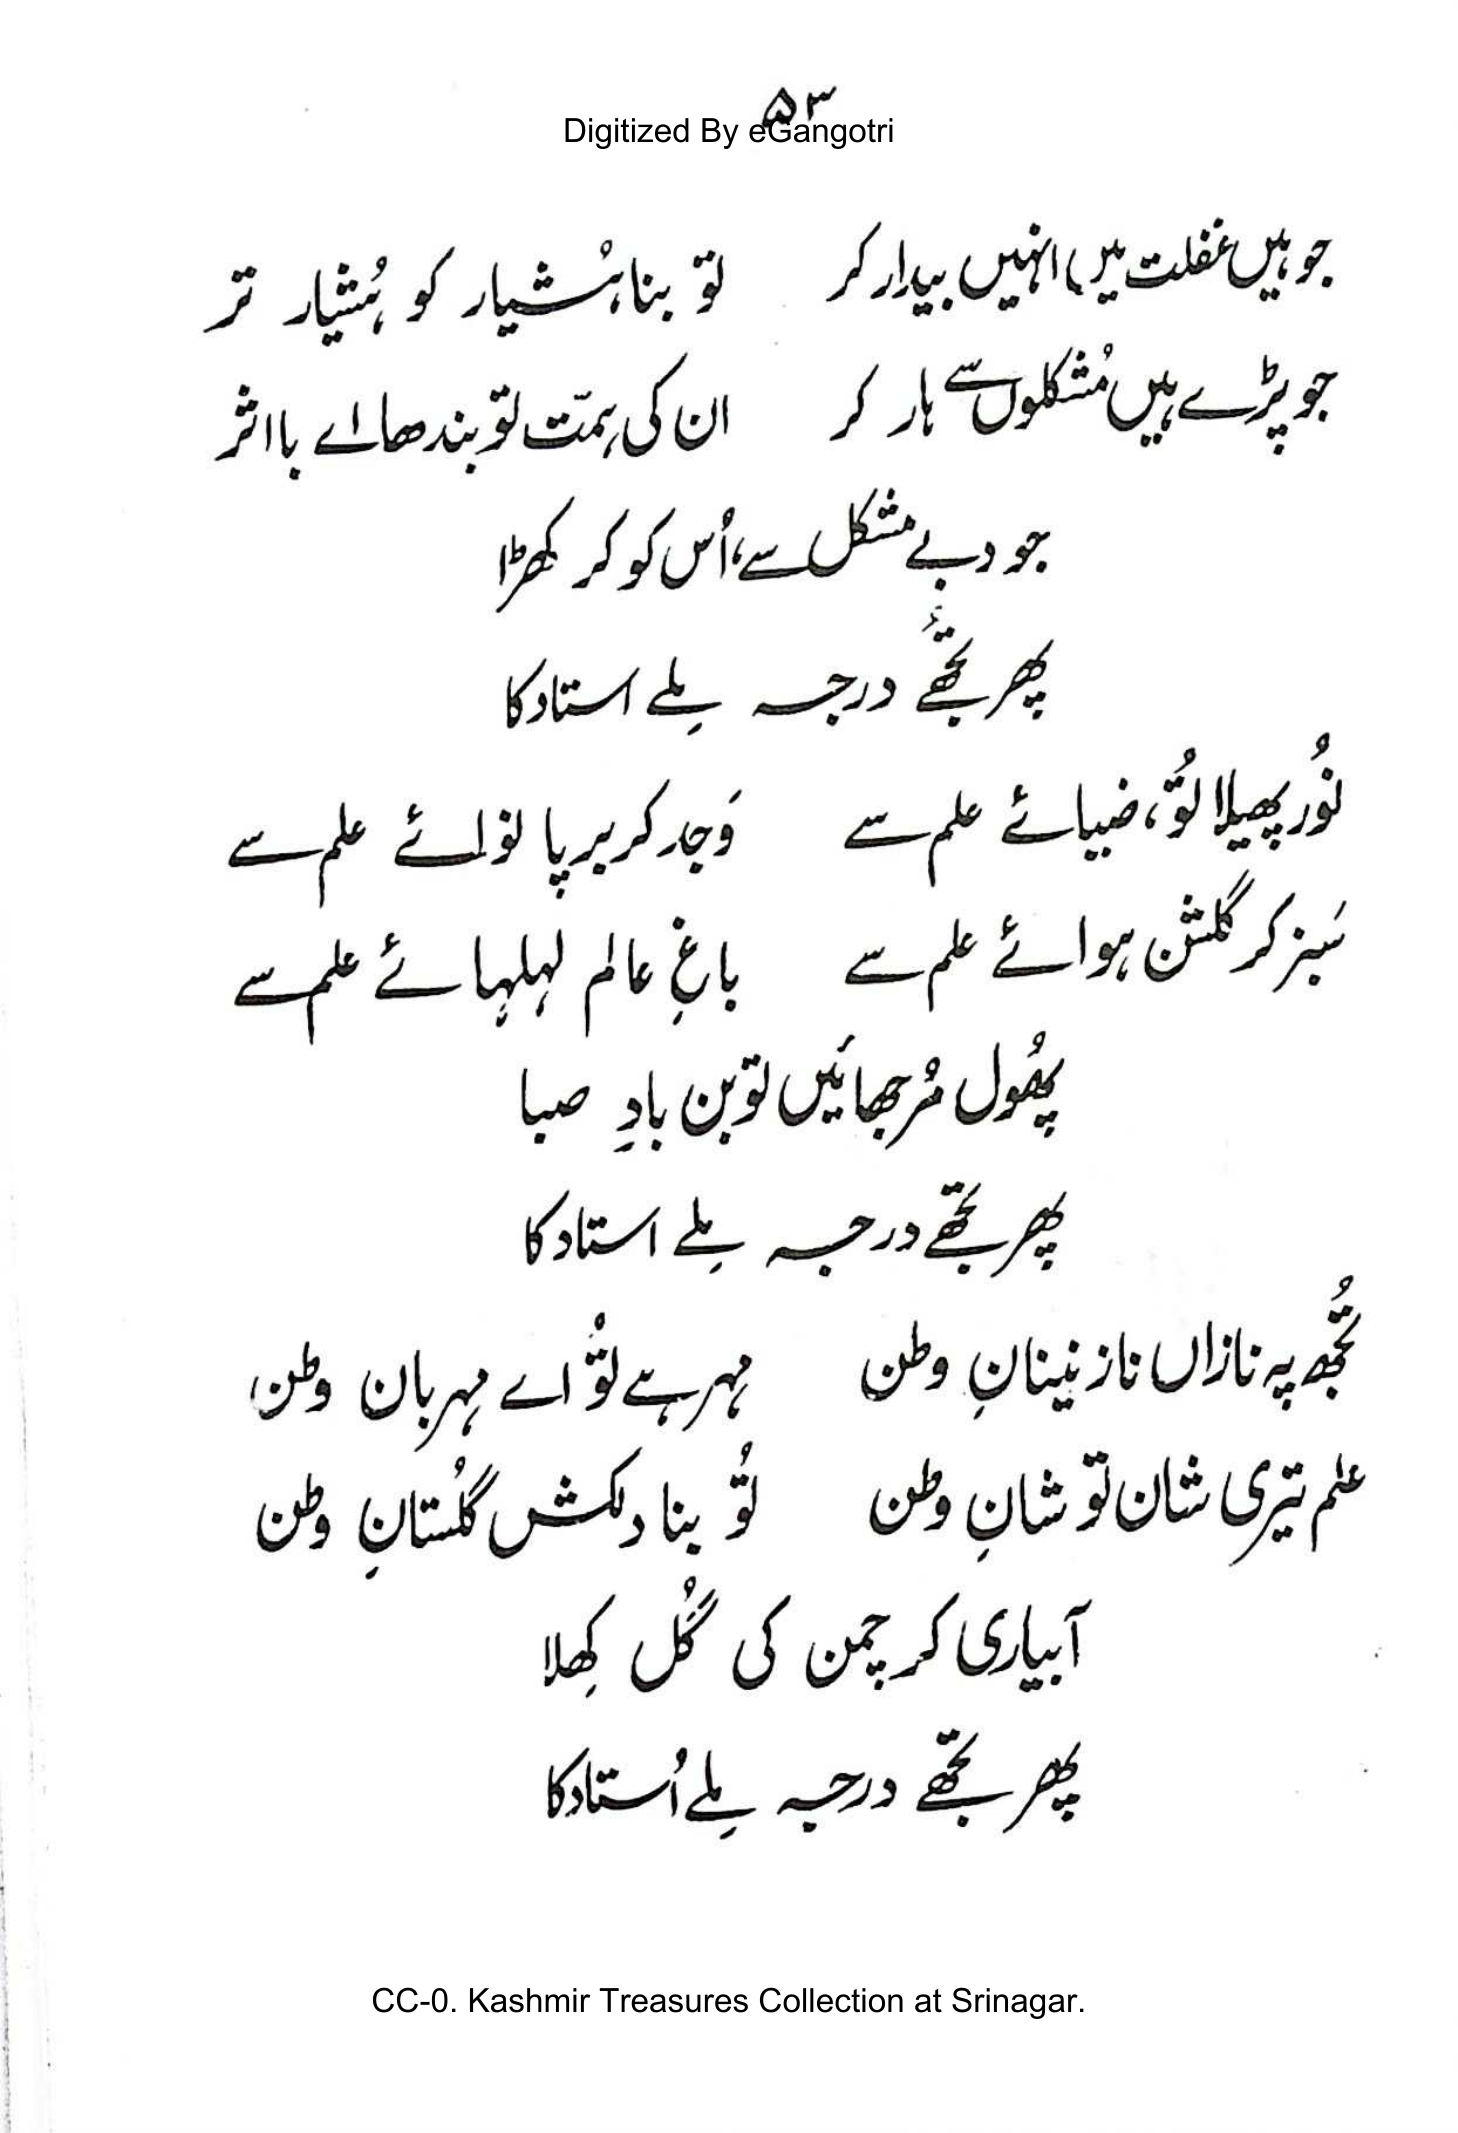 ۵۳
Digitized By eGangotri
جو ہیں غفلت میں انہیں بیدار کر تو بنا ہُشیار کو ہُشیار تر
جو پڑے ہیں مُشکلوں سے ہار کر ان کی ہمّت تو بندھا اے با اثر
جو دبے مشکل سے، اُس کو کر کھڑا
پھر تجھے درجہ مِلے استاد کا
نُور پھیلا تُو، ضیائے علم سے وَجد کر برپا نوائے علم سے
سَبز کر گلشن ہوائے علم سے باغِ عالم لہلہائے علم سے
پھُول مُرجھائیں تو بن بادِ صبا
پھر تجھے درجہ مِلے استاد کا
تُجھ پہ نازاں نازنینانِ وطن مہر ہے تُو اے مہربان وطن
علم تیری شان تو شانِ وطن تُو بنا دلکش گلُستانِ وطن
آبیاری کر چمن کی گُل کھِلا
پھر تجھے درجہ مِلے اُستاد کا
CC-0. Kashmir Treasures Collection at Srinagar.